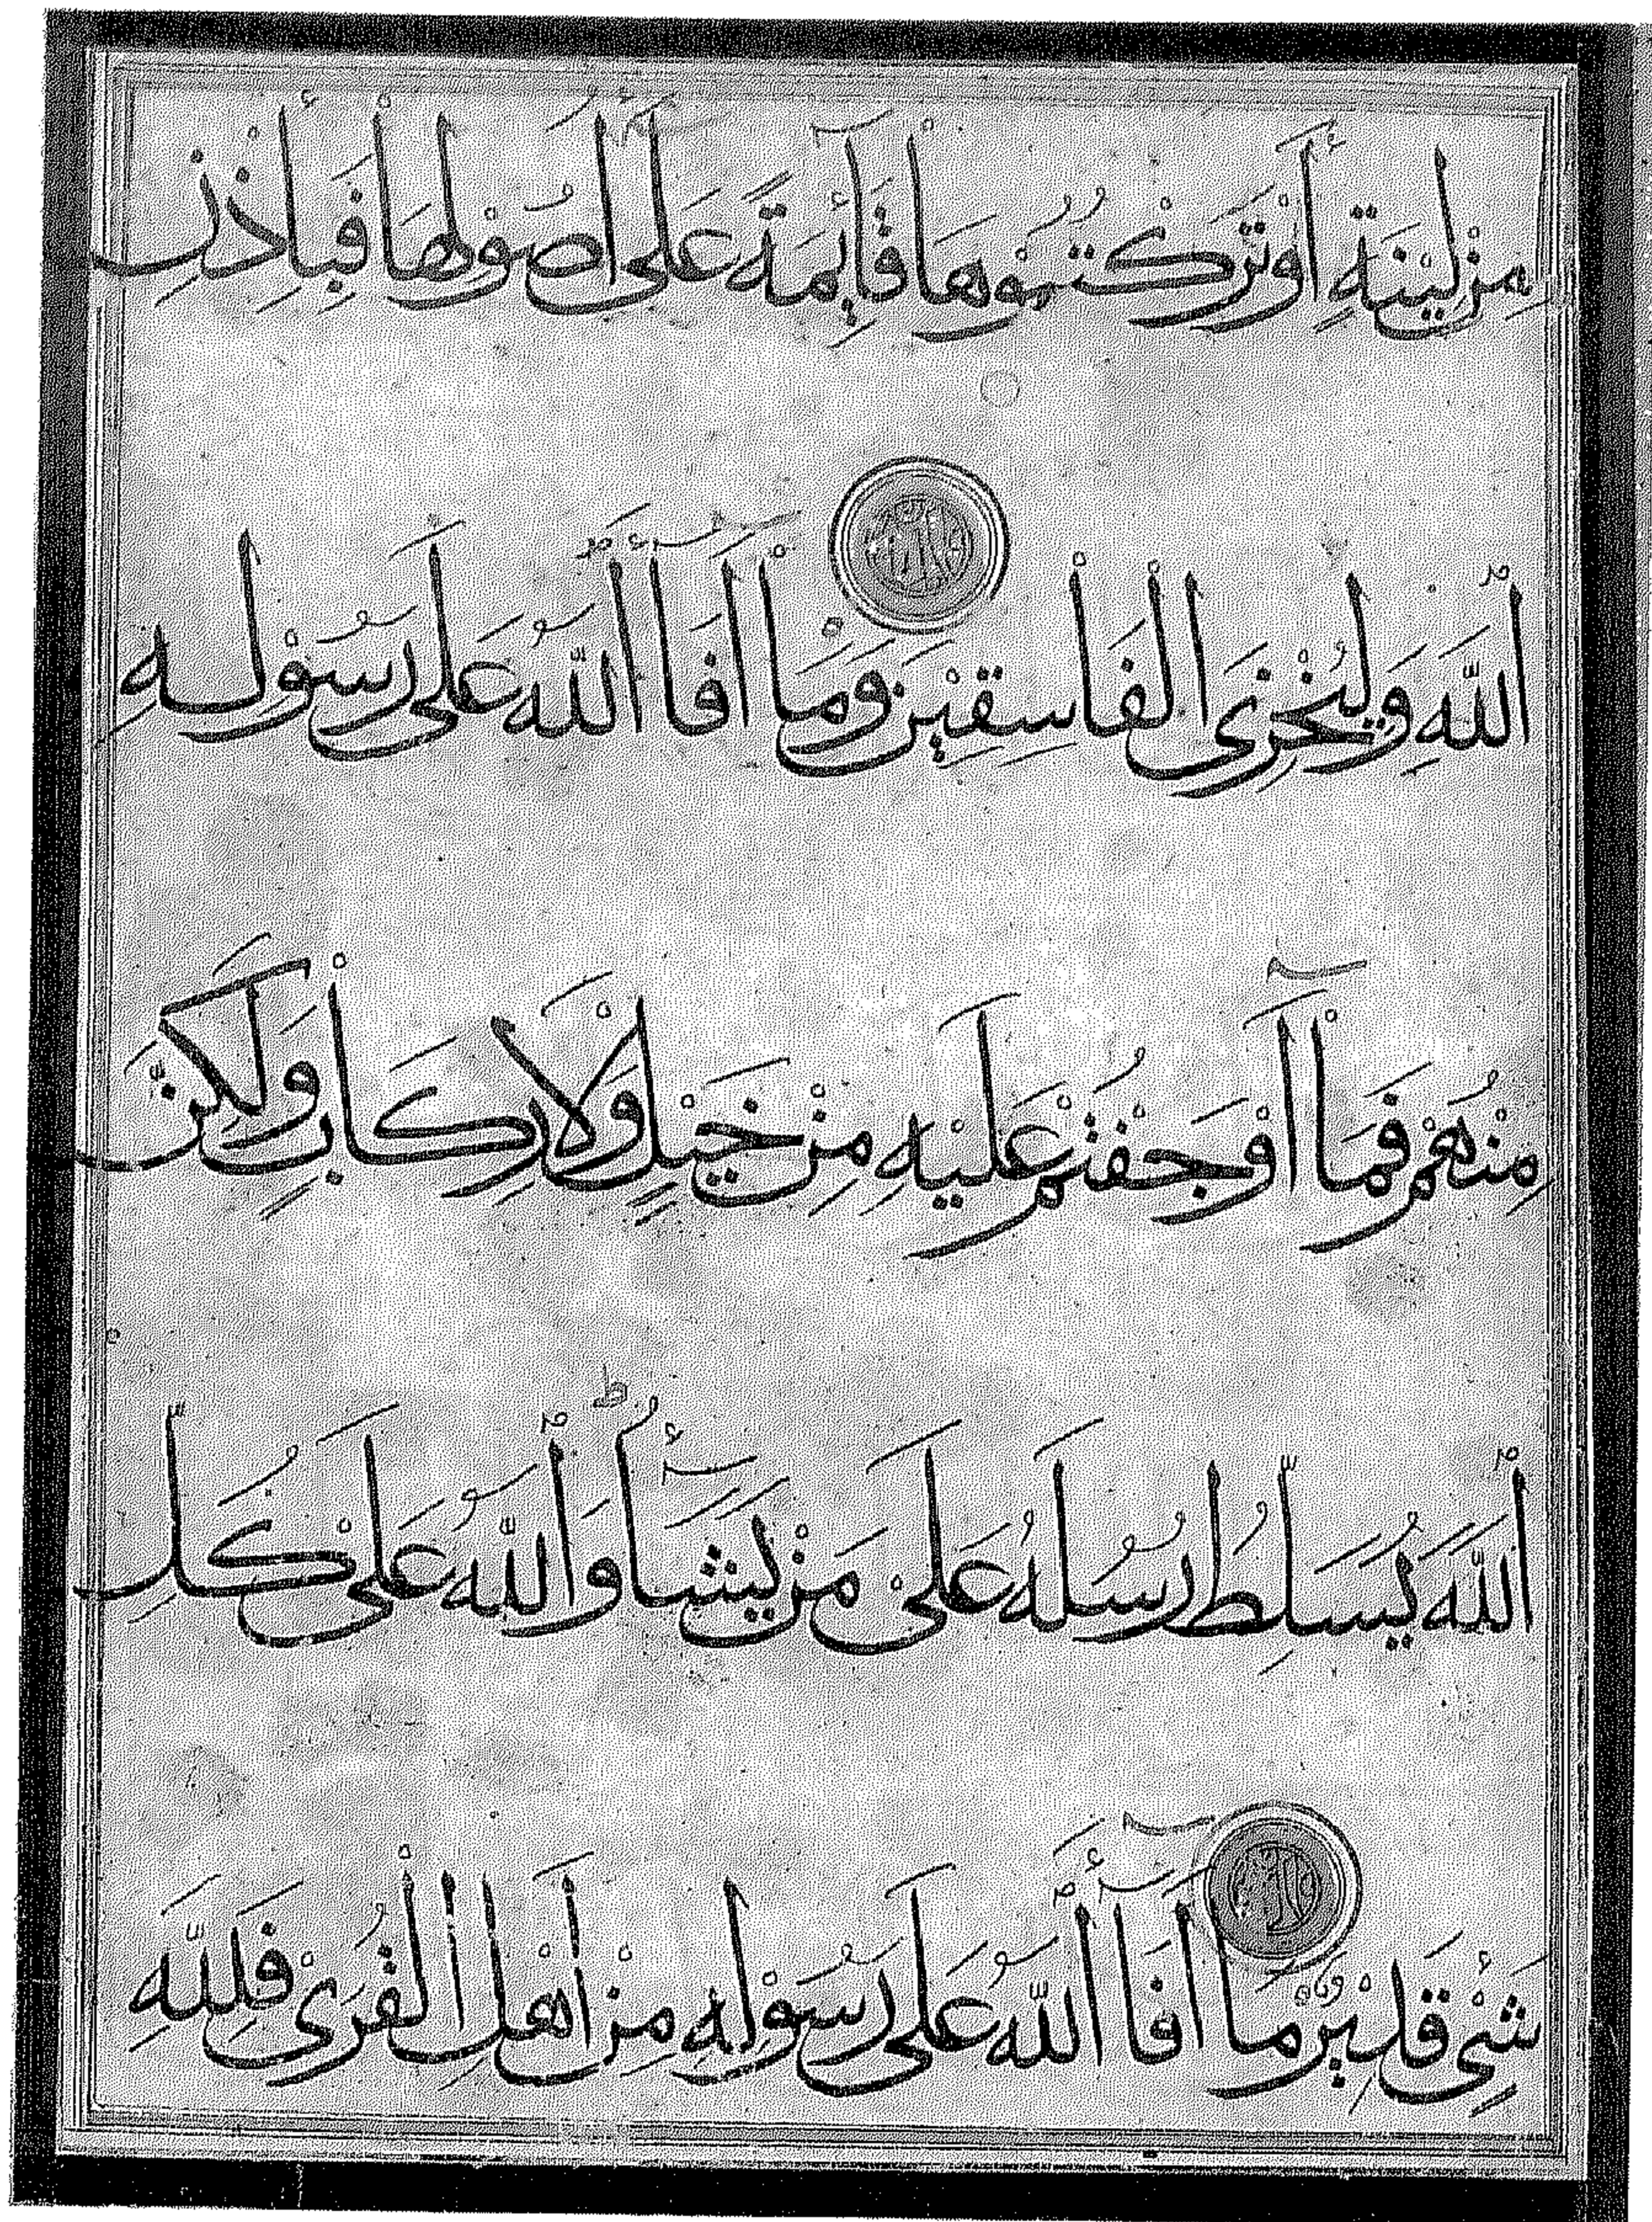 مِنْ لِينَةٍ أَوْ تَرَكْتُمُوهَا قَائِمَةً عَلَى أُصُولِهَا فَبِإِذْنِ
اللَّهِ وَلِيُخْزِيَ الْفَاسِقِينَ وَمَا أَفَاءَ اللَّهُ عَلَى رَسُولِهِ
مِنْهُمْ فَمَا أَوْجَفْتُمْ عَلَيْهِ مِنْ خَيْلٍ وَلَا رِكَابٍ وَلَكِنَّ
اللَّهَ يُسَلِّطُ رُسُلَهُ عَلَى مَنْ يَشَاءُ ط وَاللَّهُ عَلَى كُلِّ
شَيْءٍ قَدِيرٌ مَا أَفَاءَ اللَّهُ عَلَى رَسُولِهِ مِنْ أَهْلِ الْقُرَى فَلِلَّهِ